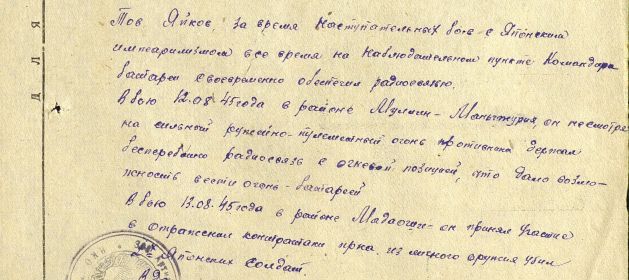 Тов Яйков, за время наступательных боев с Японским
империализмом все время на наблюдательном пункте Командира
батареи своевременно обеспечил радиосвязью.
В бою 12.08.45 года в районе Мулин - Маньчжурия, он несмотря
на сильный ружейно-пулеметный огонь противника держал
бесперебойно радиосвязь с огневой позицией, что дало возмо-
жность вести огонь - батареей
В бою 13.08.45 года в районе он принял участие
в отражении контратаки пр-ка, из личного оружия убил
2-ух Японских солдат
ДЛЯ